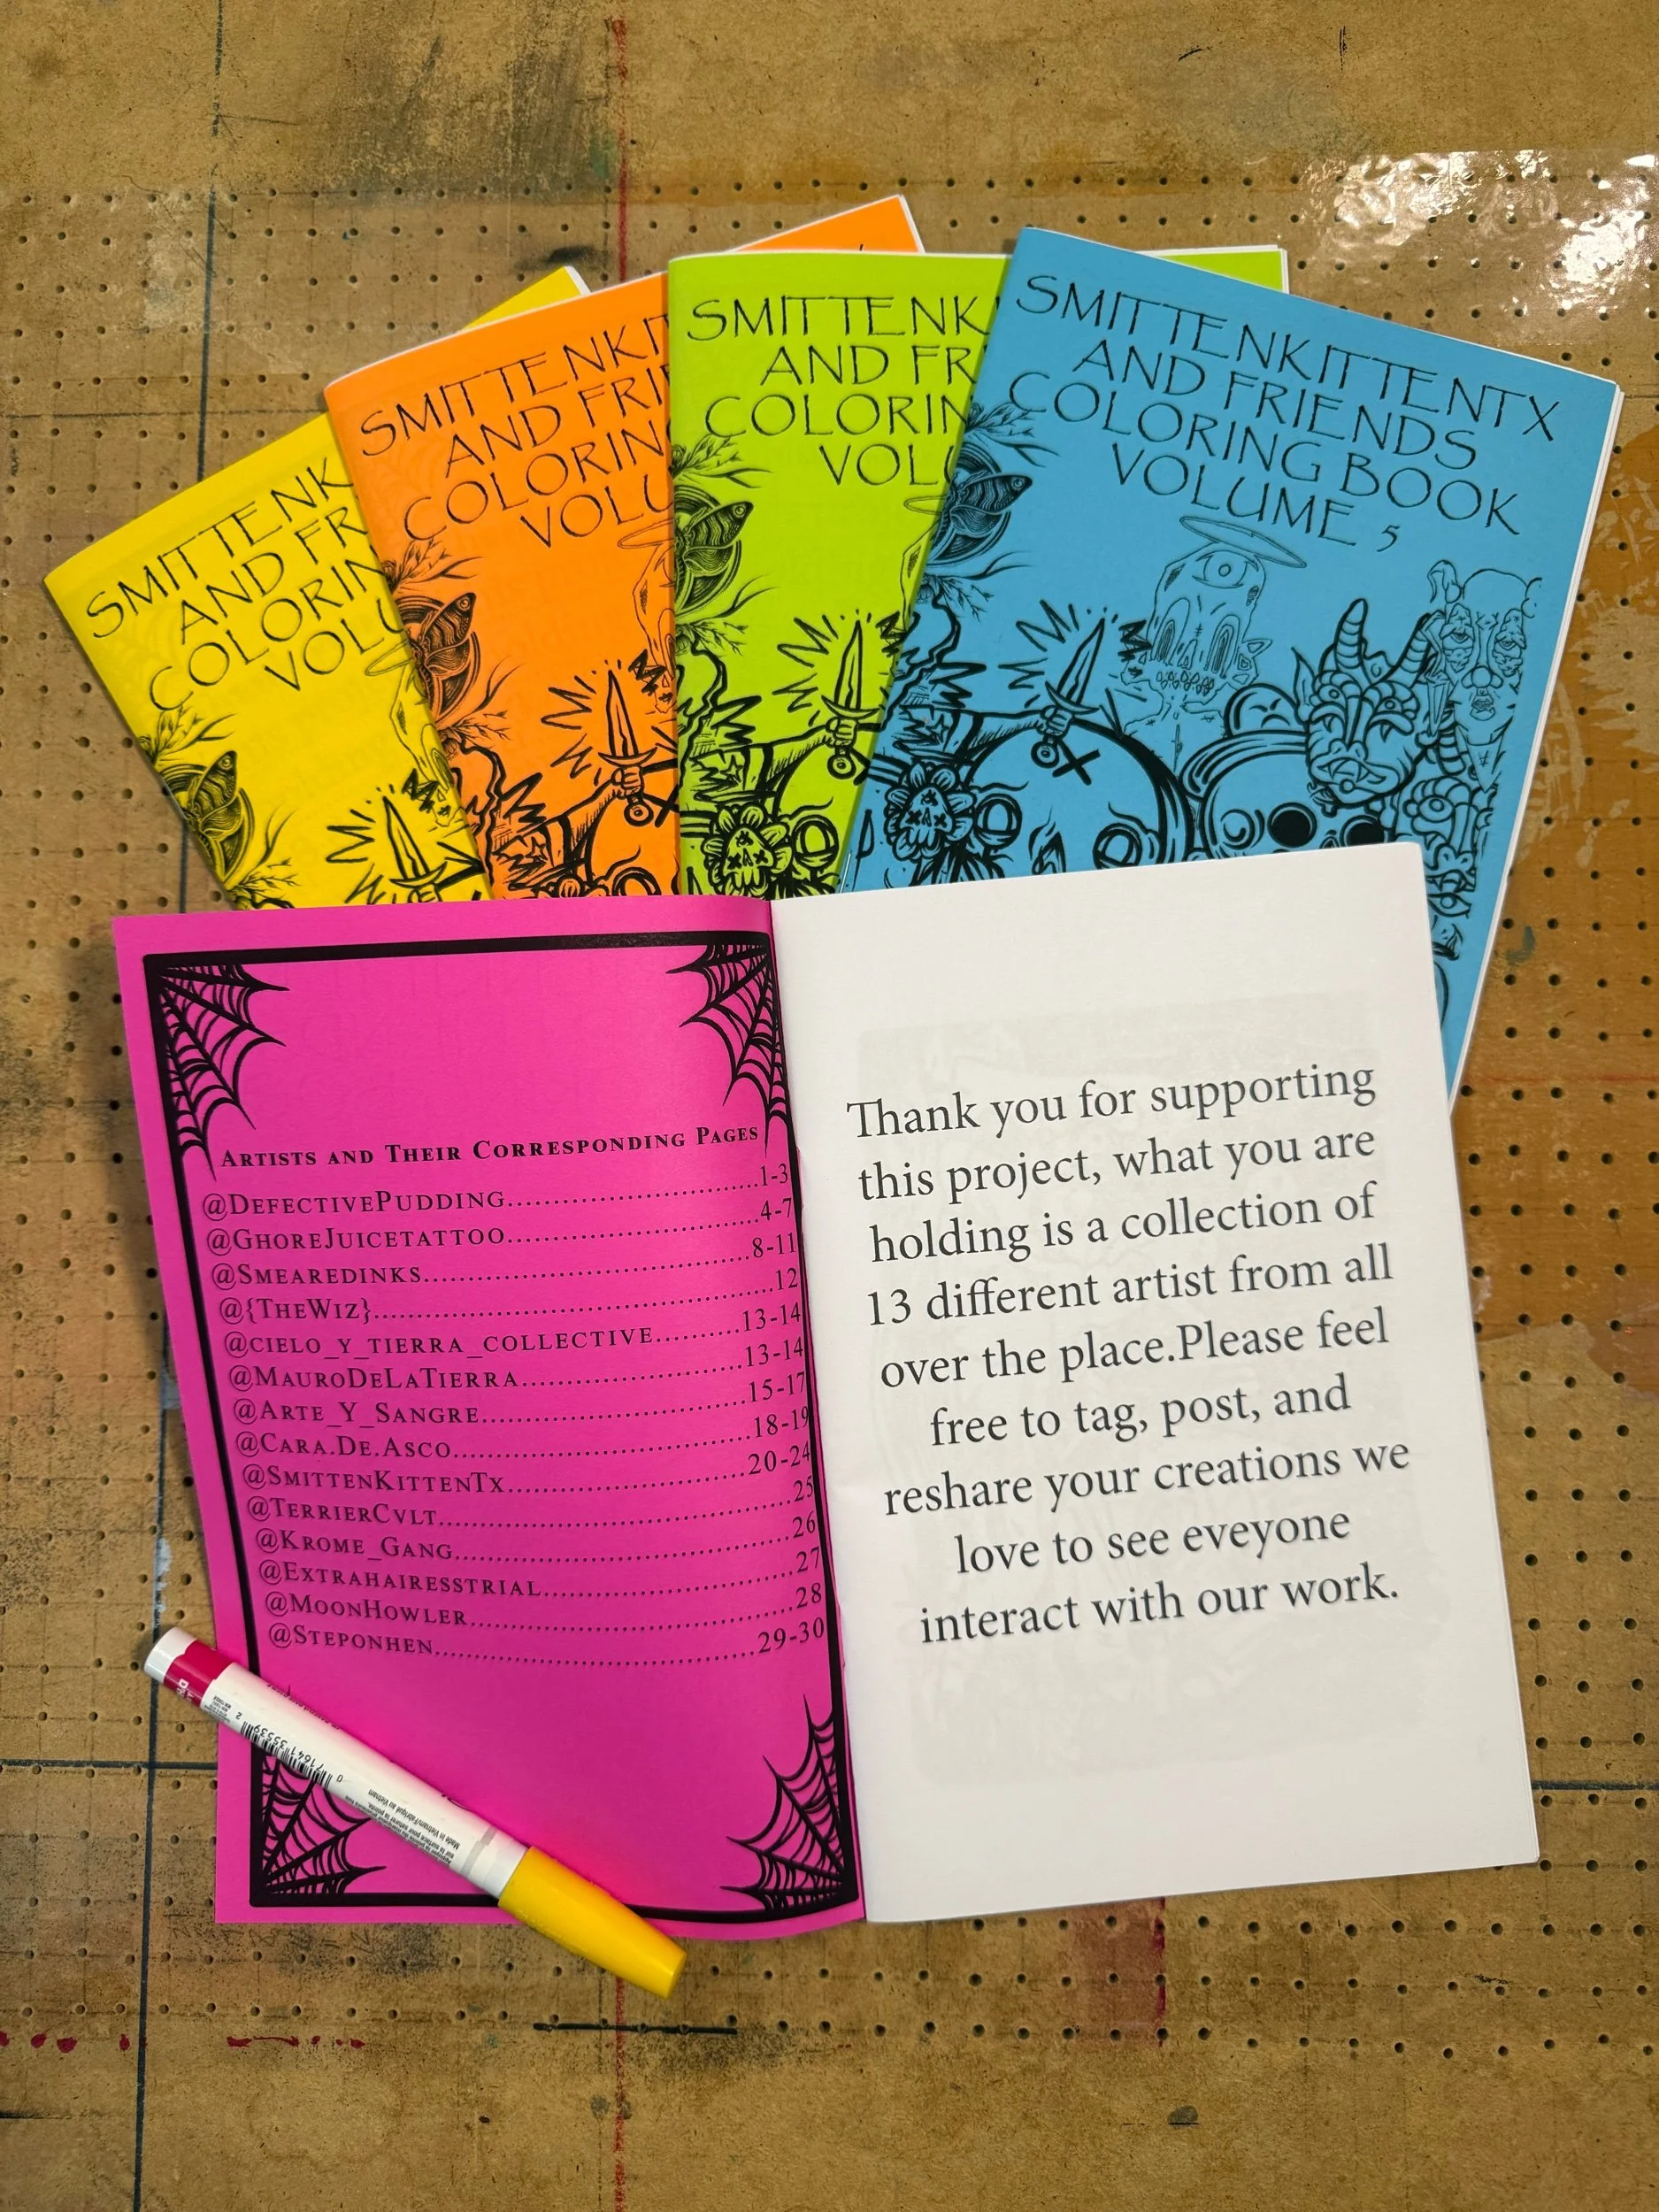 SMITTENK
AND FR
COLORIN
VOLU
SMITTENKIT
AND FRIE
COLORING
VOLU
SMITTENK
AND FR
COLORIN
VOLU
SMITTENKITTENTX
AND FRIENDS
COLORING BOOK
VOLUME 5
ARTISTS AND THEIR CORRESPONDING PAGES
@DEFECTIVEPUDDING..................................1-3
@GHOREJUICETATTOO..................................4-7
@SMEAREDINKS..................................8-11
@{THEWIZ}..................................12
@CIELO_Y_TIERRA_COLLECTIVE..........13-14
@MAURODELATIERRA..................................13-14
@ARTE_Y_SANGRE..................................15-17
@CARA.DE.ASCO..................................18-19
@SMITTENKITTENTX..................................20-24
@TERRIERCVLT..................................25
@KROME_GANG..................................26
@EXTRAHAIRESSTRIAL..................................27
@MOONHOWLER..................................28
@STEPONHEN..................................29-30
Thank you for supporting
this project, what you are
holding is a collection of
13 different artist from all
over the place.Please feel
free to tag, post, and
reshare your creations we
love to see eveyone
interact with our work.
0 71641 35539 2
Made in Vietnam/Fabriqué au Vietnam